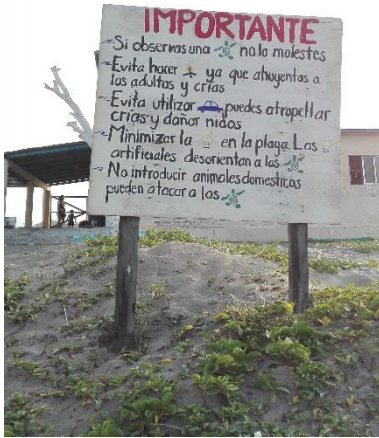 IMPORTANTE
-Si observas una no la molestes
-Evita hacer ya que ahuyentas a
los adultos y crias
-Evita utilizar puedes atropellar
crias y dañar nidos
-Minimizar la en la playa. Las
artificiales desorientan a las
-No introducir animales domesticos
pueden atacar a las